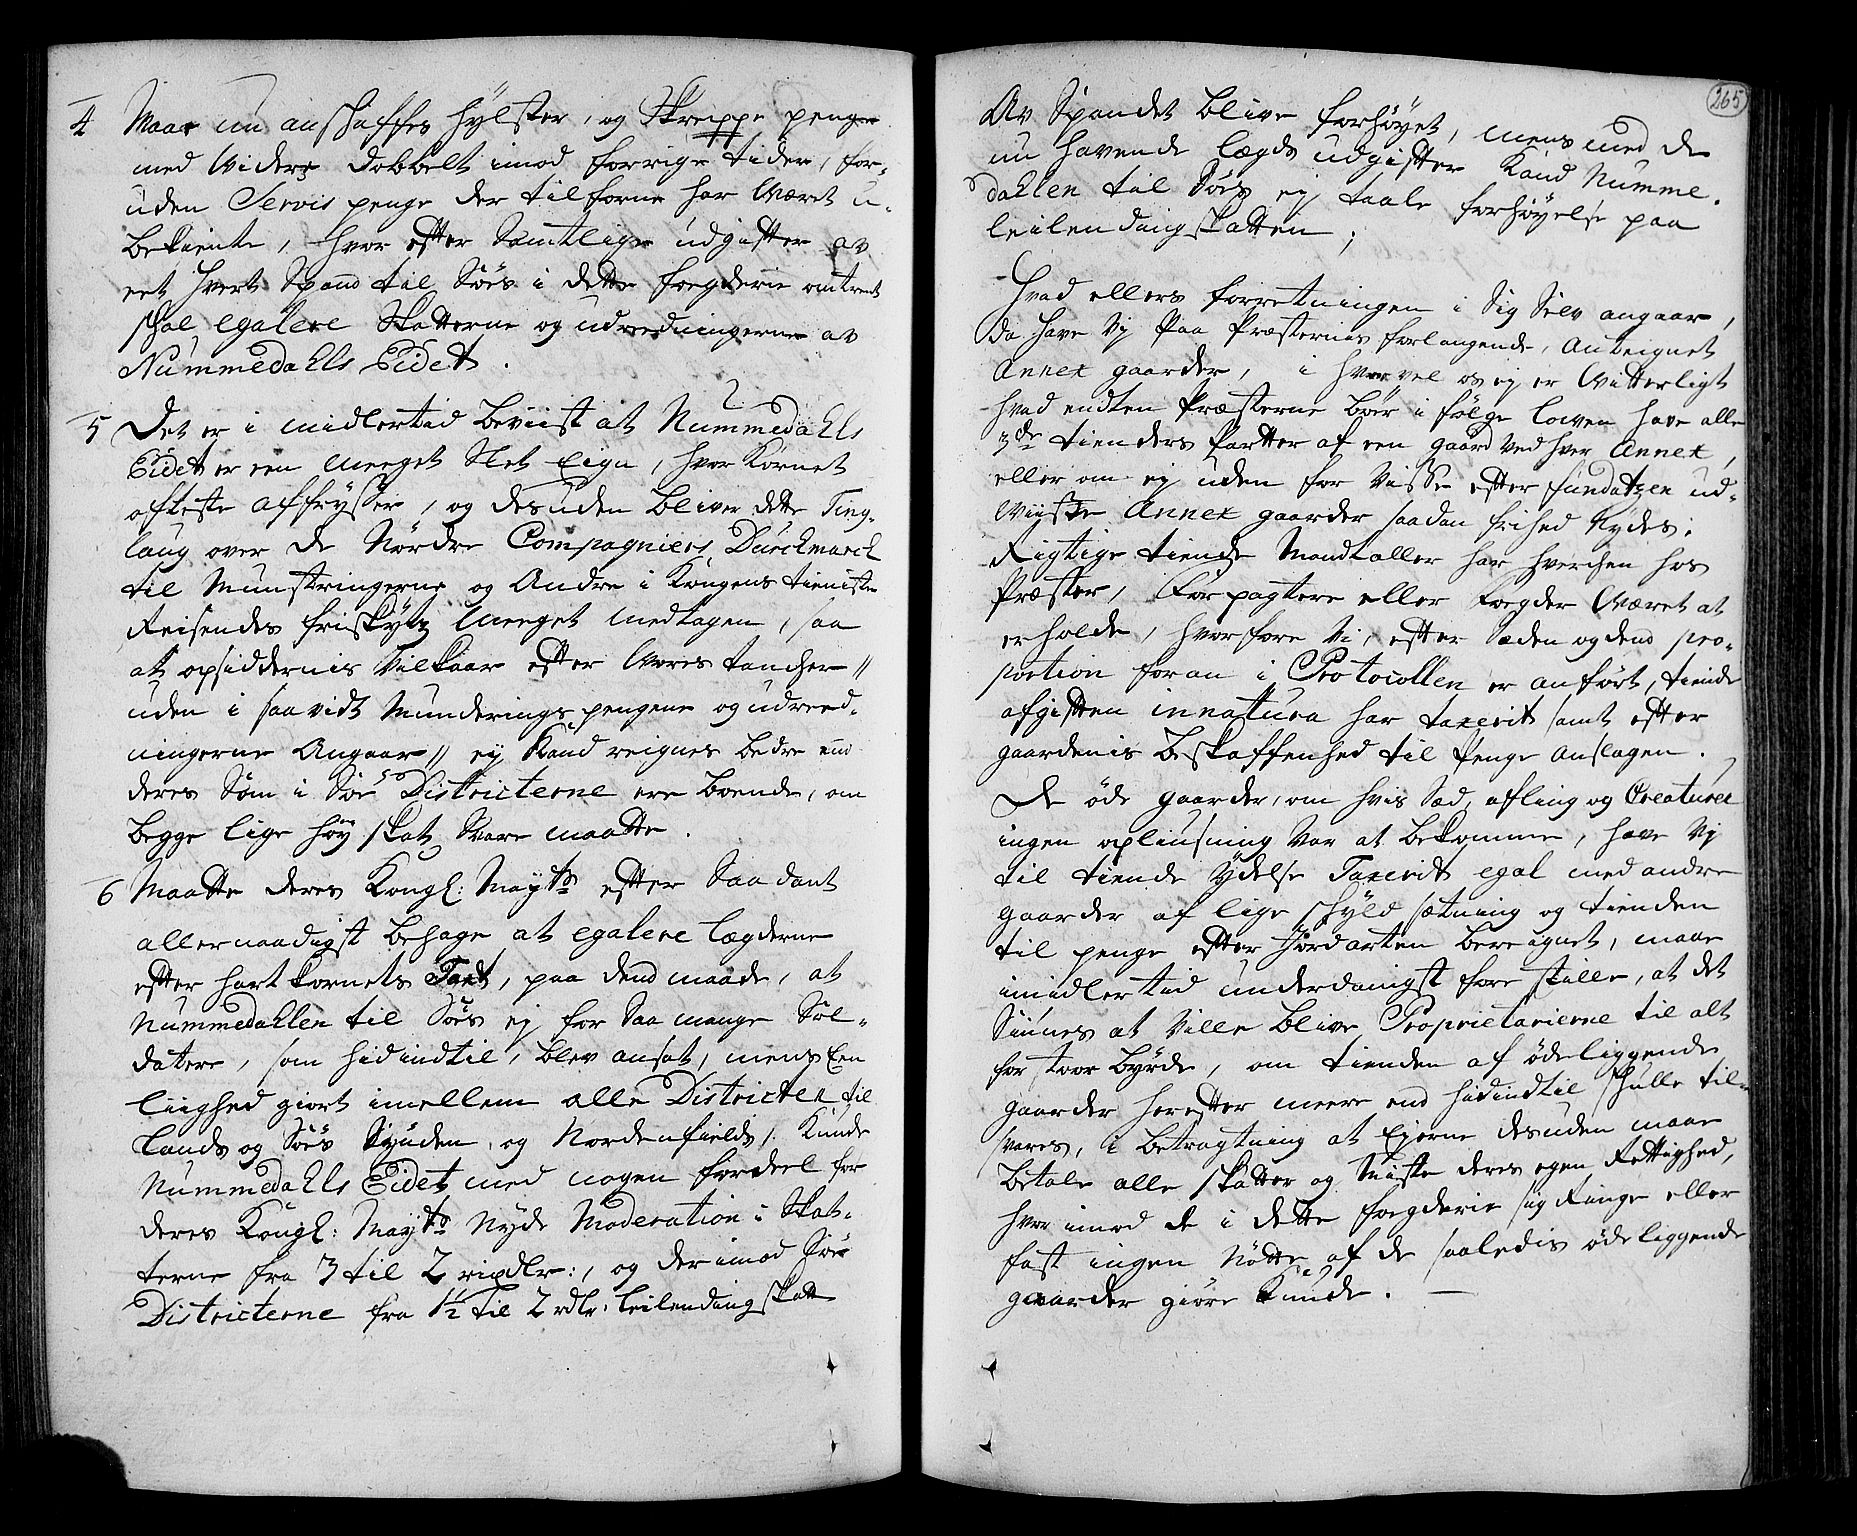 4 Maae nu anschaffes hylster, og Skreppe penge
med widere dobbelt imod forrige tider, for-
uden Servis penge der tilforne har Wæret u-
bekiente, hvor efter Samtlige udgifter av
eet hvert Spand til Söes i dette fogderie omtrent
schal egalere Skatterne og udredningerne av
Nummedahls Eidet.
5 Det er i midlertid beviist at Nummedahls
Eidet er een meeget Slet Eign, hvor Kornet
ofteste affryser, og desuden bliver dette Ting-
laug over de Nordre Compagniers Durchmarch
til Munstringerne og Andre i Kongens tieniste
Reisendes friskytz meeget medtagen, saa
at opsiddernis Vilkaar efter Vores tancher //
uden i saavidt Munderings pengene og udreed-
ningerne Angaar // ey Kand reignes bedre end
deres Som i Söe Districterne ere boende, om
begge lige høy skat Svare maatte.
6 Maatte deres Kongl: Mayts efter Saadant
allernaadigst behage at egalere lægderne
efter hartkornets Taxt, paa dend maade, at
Nummedahlen til Söes ej for Saa mange Sol-
datere, som hidindtil, blev ansat, mens Een
liighed giort imellem alle Districter til
Lands og Söes Synden, og Nordenfields, Kunde
Nummedahls Eidet med nogen fordeel for
deres Kongl: Mayts Nyde Moderation i Skat-
terne fra 3 til 2 rixdlr:, og derimod Söe
Districterne fra 1½ til 2 rdlr: leilendingskatt
265
Av Spandet blive forhøyet, mens med de
nu havende lægds udgifter Kand Numme-
dahlen til Söes ej taale forhøyelse paa
leilendingskatten;
Hvad ellers forretningen i Sig Selv angaar,
da have Vj paa Præsternis forlangende, Anteignet
Annex gaarder, i hvorvel os ej er Witterligt
hvad endten Præsterne bør i følge lowen have alle
3de tienders parter af een gaard ved hver Annex,
eller om ej uden for Visse efter fundatzen ud-
wiiste Annex gaarder saadan frihed Nydes:
Rigtige tiende Mandtaller har hverchen hos
Præster, Forpagtere eller Fogder Wæret at
erholde, hvorfore Vi, efter Sæden og dend pro-
portion foran i Protocollen er anført, tiende
afgiften innatura har taxerit samt efter
gaardenis beskaffenhed til penge anslagen.
De øde gaarder, om hvis Sæd, afling og Creaturer
ingen opliusning Var at bekomme, have Vj
til tiende Ydelse Taxerit egal med andre
gaarder af lige schyld sætning og tienden
til penge efter Jordarten bereignet, maae
imidlertid underdanigst forestille, at det
Siunes at Ville blive Proprietarierne til alt
for stoor byrde, om tienden af ødeliggende
gaarder herefter meere end hidindtil schulle til-
svares, i betragtning at Ejerne desuden maae
betale alle skatter og Miste deres egen Rettighed,
hvor imod de i dette fogderie sig Ringe eller
fast ingen Nötte af de saaledis ødeliggende
gaarder giøre Kunde.